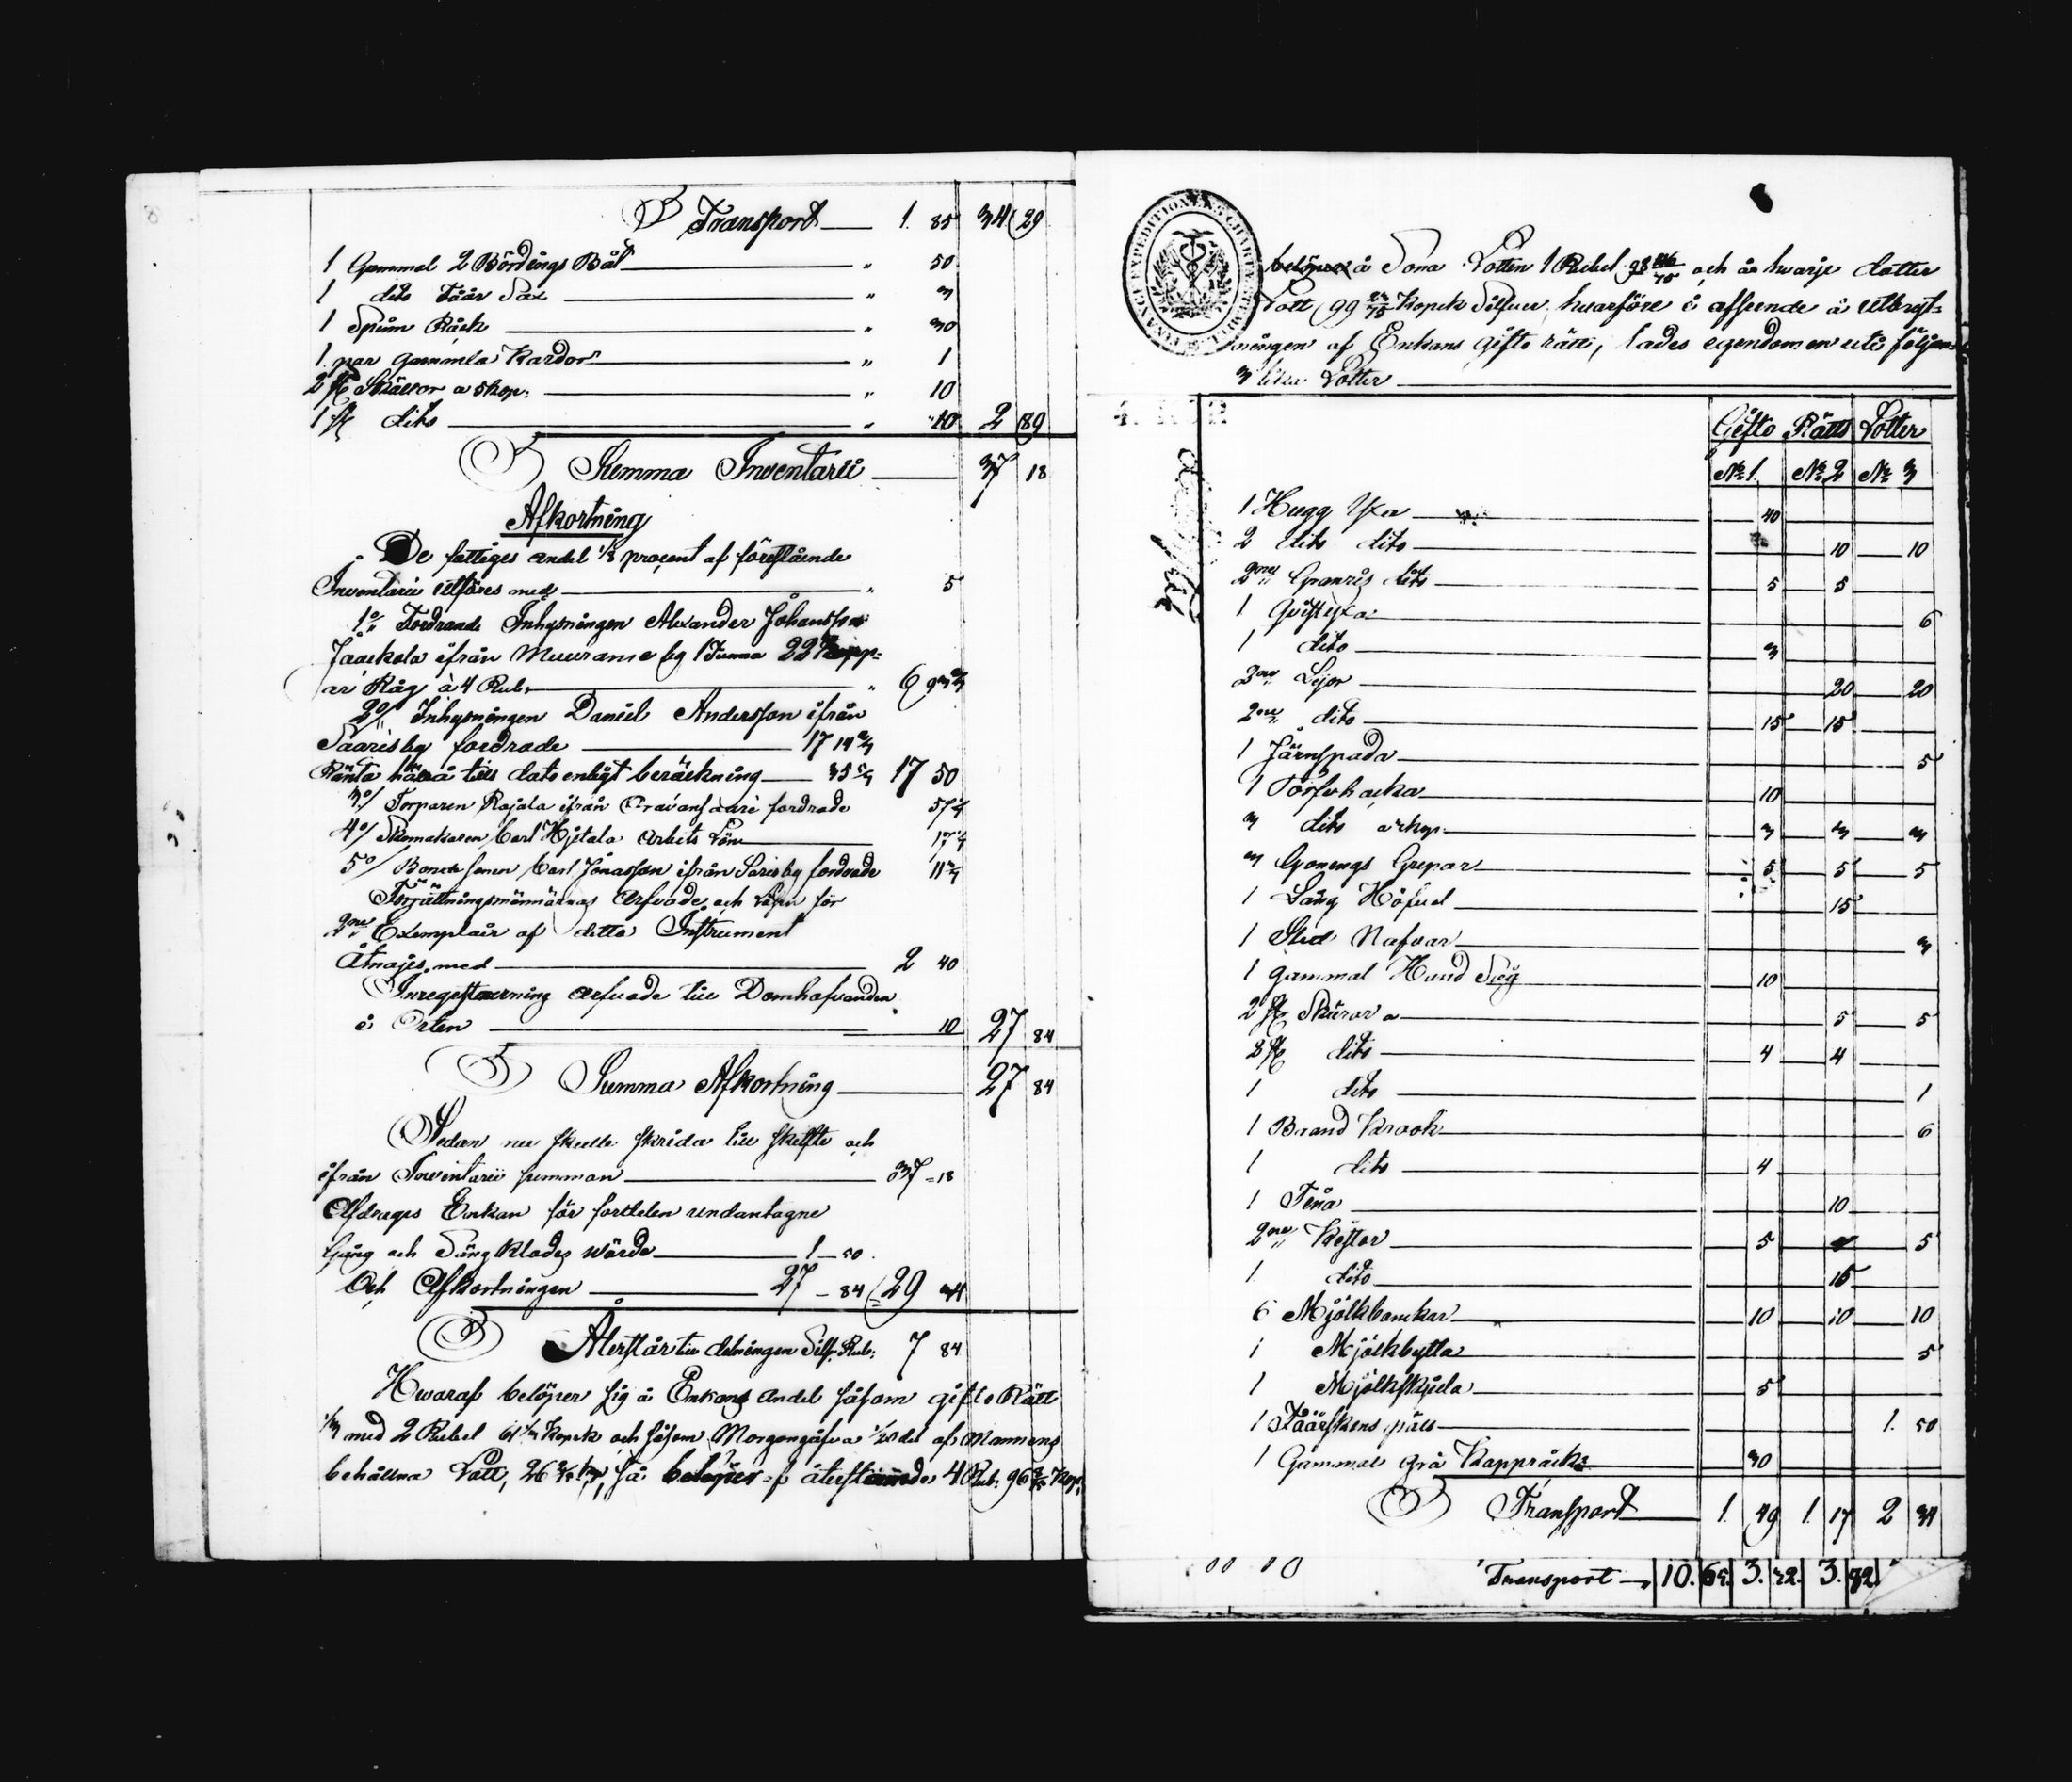 Transport 1. 85 34 29
1 Gammal 2 Bördings Båt " 50
1 dito Fåår Sax " 3
1 Spinn Råck " 30
1 par gammla Kardor " 1
2 st a 5 kop: " 10
1 st dito " 10 2 89
Summa Inventarii 37 18
Afkortning
De fattiges andel 1/8 procent af förestående
Inventarii utföres med " 5
1o/ Fordrande Inhysningen Alexander Johansson
Jaackola ifrån Muurame by 1 Tunna 22 Kapp-
ar Råg à 4 Rub: " 6
2o/ Inhysningen Daniel Andersson ifrån
Saarisby fordrade 17 14 2/7
Ränta härå till dato enligt beräckning 35 5/7 17 50
3o/ Torparen Rajala ifrån fordrade 57 1/7
4o/ Skomakaren Carl Hjetala Arbets Lön 17 1/7
5o/ Bonde Sonen Carl Jonasson ifrån Sarisby fordrade 11 3/7
Förrättningsmännärnas Arfvode och Lösen för
2ne Exemplair af detta Instrument
Åtnöjes med 2 40
Inregistrerning arfvode till Domhafvanden
i Orten 10 27 84
Summa Afkortning 27 84
Sedan nu skulle skrida till skifte och
ifrån Inventarii summan 37 - 18
Afdrages Enkan för fordelen undantagne
Säng och Sängklades wärde 1 - 50
Och Afkortningen 27 - 84 29 34
Återstår till delningen Silf. Rub: 7 84
Hwaraf belöper sig å Enkans andel såsom gifto Rätt
1/3 med 2 Rubel 61 1/3 Kopek och såsom Morgongåfva 1/20 del af Mannens
behållna Lott, 26 kop, så belöper af återstående 4 Rub: 96 Kop:
FINANCI EXPEDITIONENS CHARTÆ STEMPEL
4. KOP
belöper å Sona Lotten 1 Rubel 98 och å hwarje dotter
Lott 99 Kopek Silfver, hwarföre i afseende å utbryt-
ningen af Enkans gifto rätt, lades egendomen uti följande
3 lika Lotter
Gifto Rätts Lotter
No 1. No 2 No 3
1 Hugg Yxa 40
2 dito dito 10 10
2ne Granris dito 5 5
1 Qvistyxa 6
1 dito 3
2ne Lijor 20 20
2ne dito 15 15
1 Järnspada 5
1 Torfvhacka 10
3 dito a 3 kop: 3 3 3
3 Gönings Grepar 5 5 5
1 Lång Höfvel 15
1 Sted Nafvar 3
1 gammal Hand Såg 10
2 st Skäror a 5 5
2 st dito 4 4
1 dito 1
1 Brand Krook 6
1 dito 4
1 Tina 10
2ne Kistor 5 5
1 dito 15
6 Mjölkbunkar 10 10 10
1 Mjölkbytta 5
1 Mjölkskjula 5
1 Fåårskens päls 1. 50
1 Gammal grå Kappråck 30
Transport 1. 49 1. 17 2 34
Transport 10. 65. 3. 22. 3. 82.